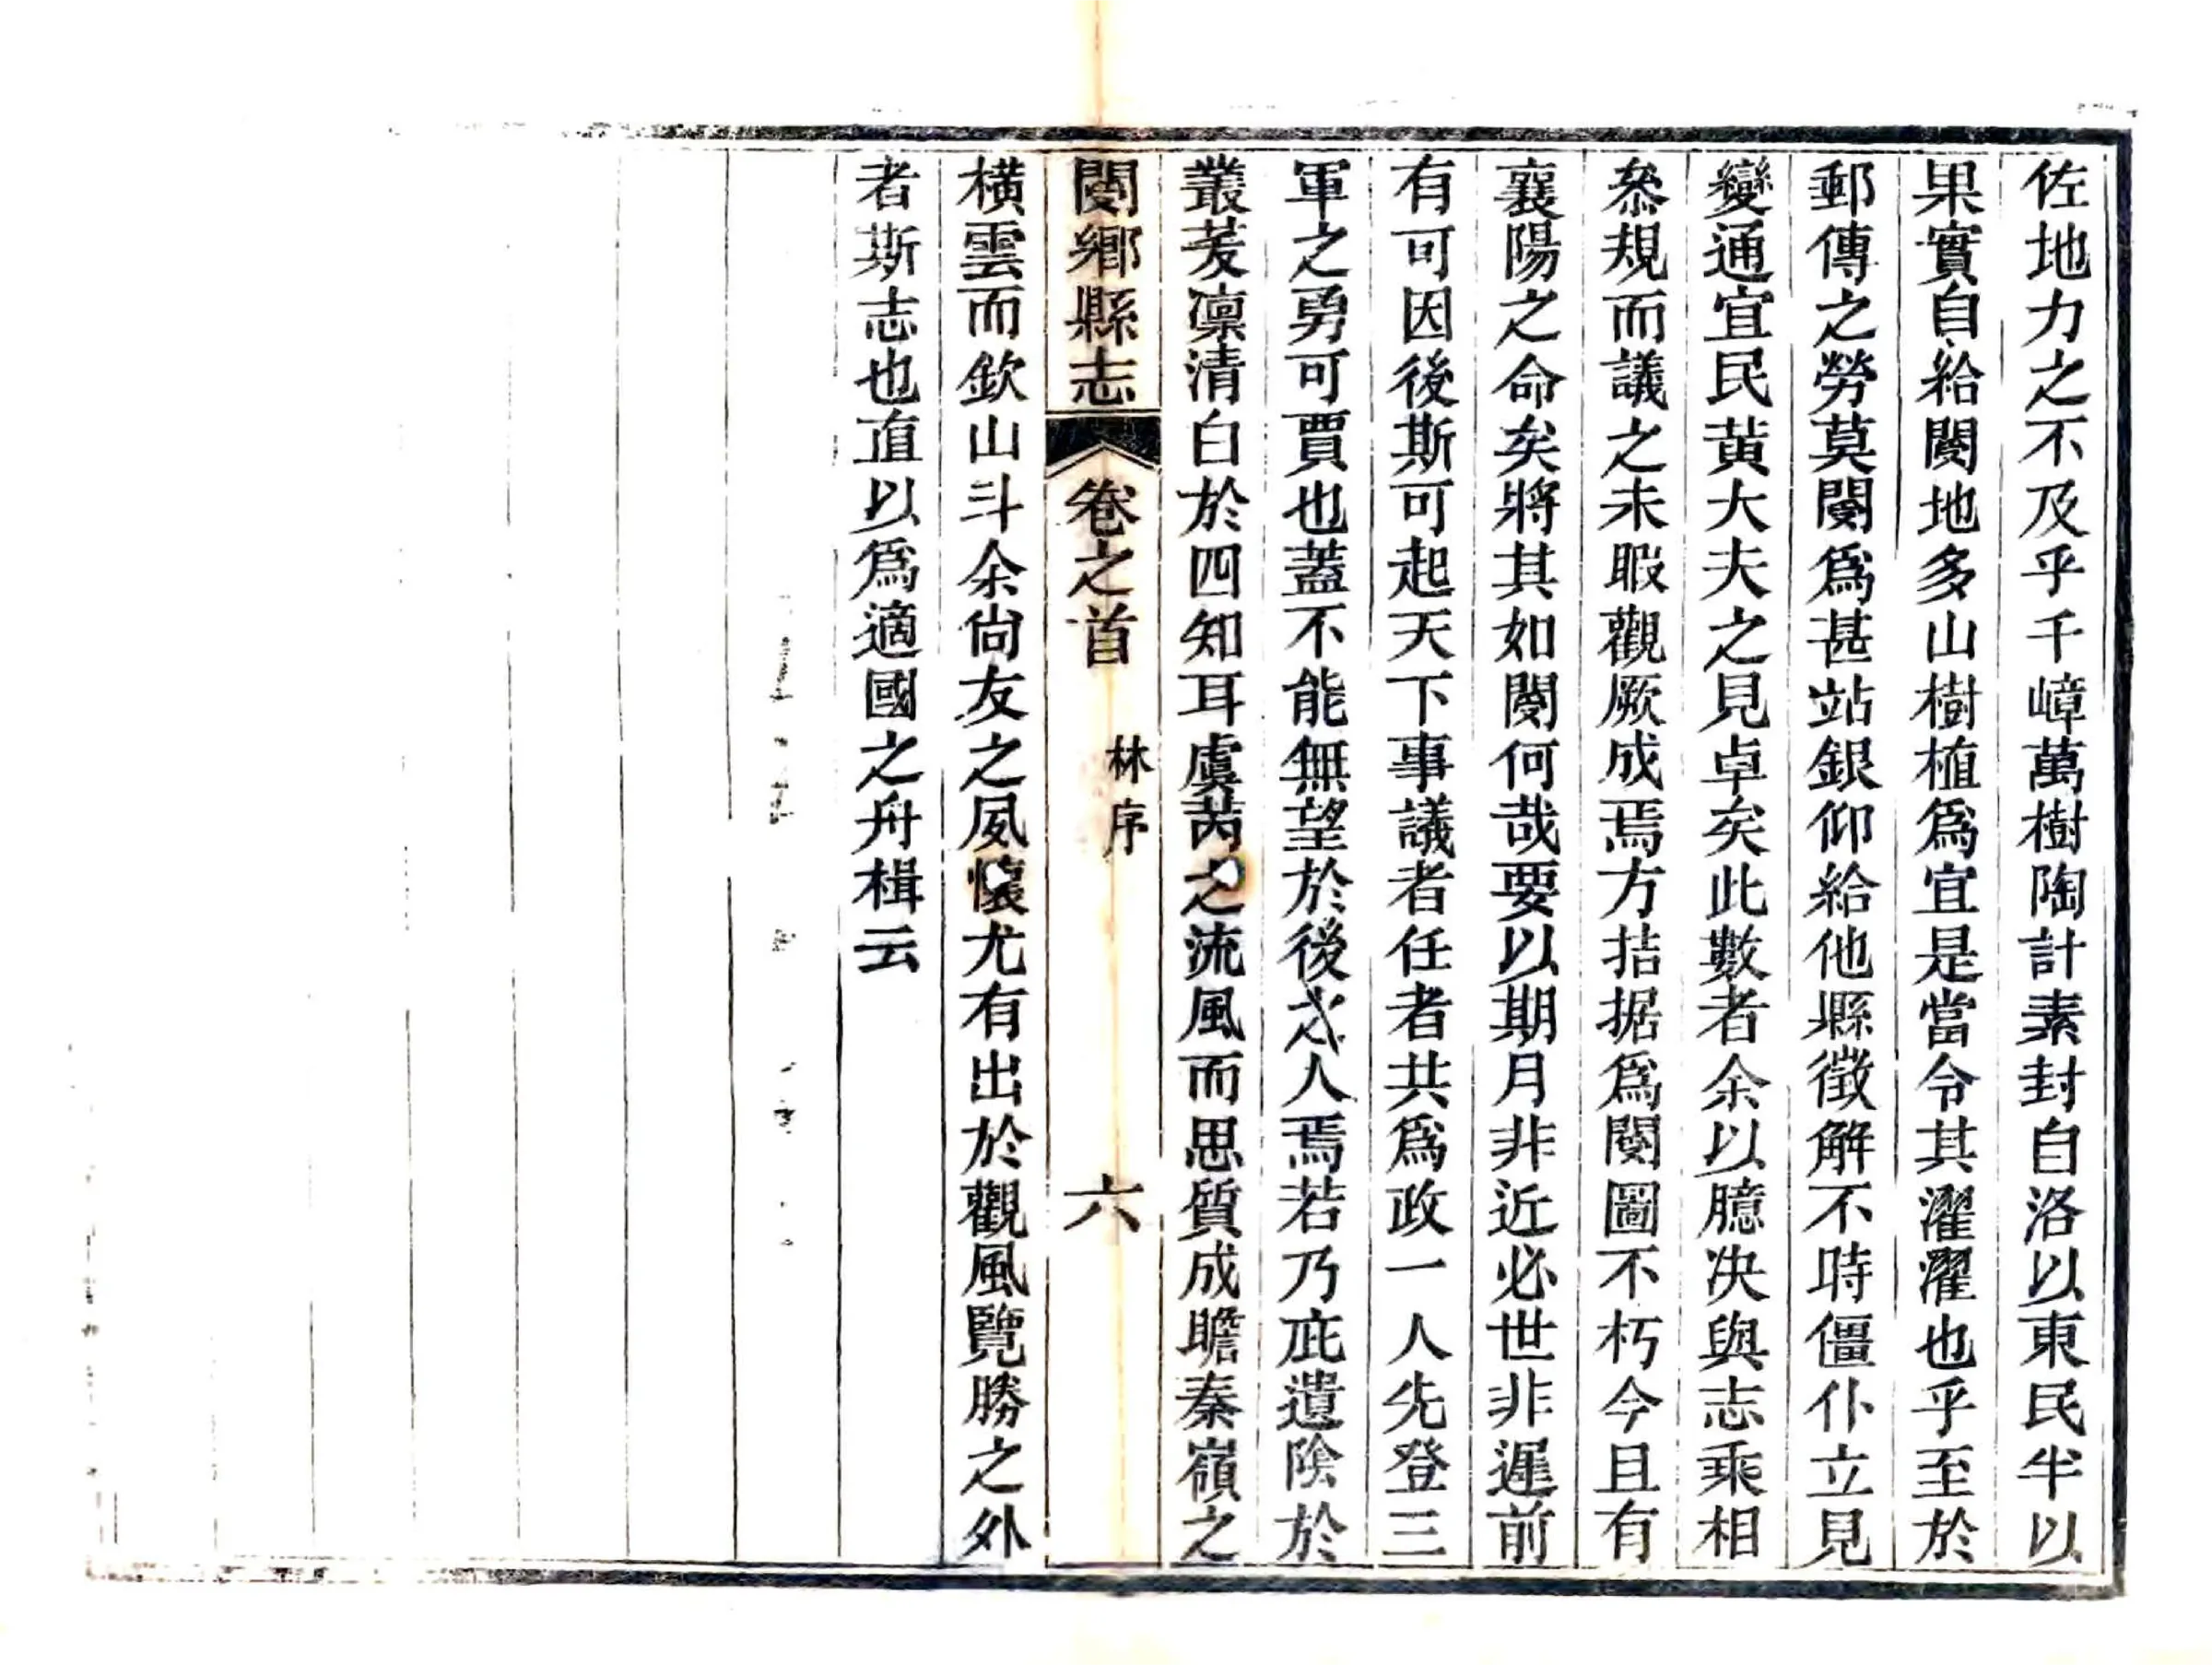 佐地力之不及乎千嶂萬樹陶計素封自洛以東民半以
果實自給閿地多山樹植爲宜是當令其濯濯也乎至於
郵傳之勞莫閿爲甚站銀仰給他縣徵解不時僵仆立見
變通宜民黄大夫之見卓矣此數者余以臆决與志乘相
叅規而議之未暇觀厥成焉方拮据爲閿圖不朽今且有
襄陽之命矣將其如閿何哉要以期月非近必世非遲前
有可因後斯可起天下事議者任者共爲政一人先登三
軍之勇可賈也蓋不能無望於後之人焉若乃庇遺陰於
叢茇凛清白於四知耳虞芮之流風而思質成瞻秦嶺之
閿鄉縣志 卷之首 林序 六
橫雲而欽山斗余尙友之夙懷尤有出於觀風覽勝之外
者斯志也直以爲適國之舟楫云